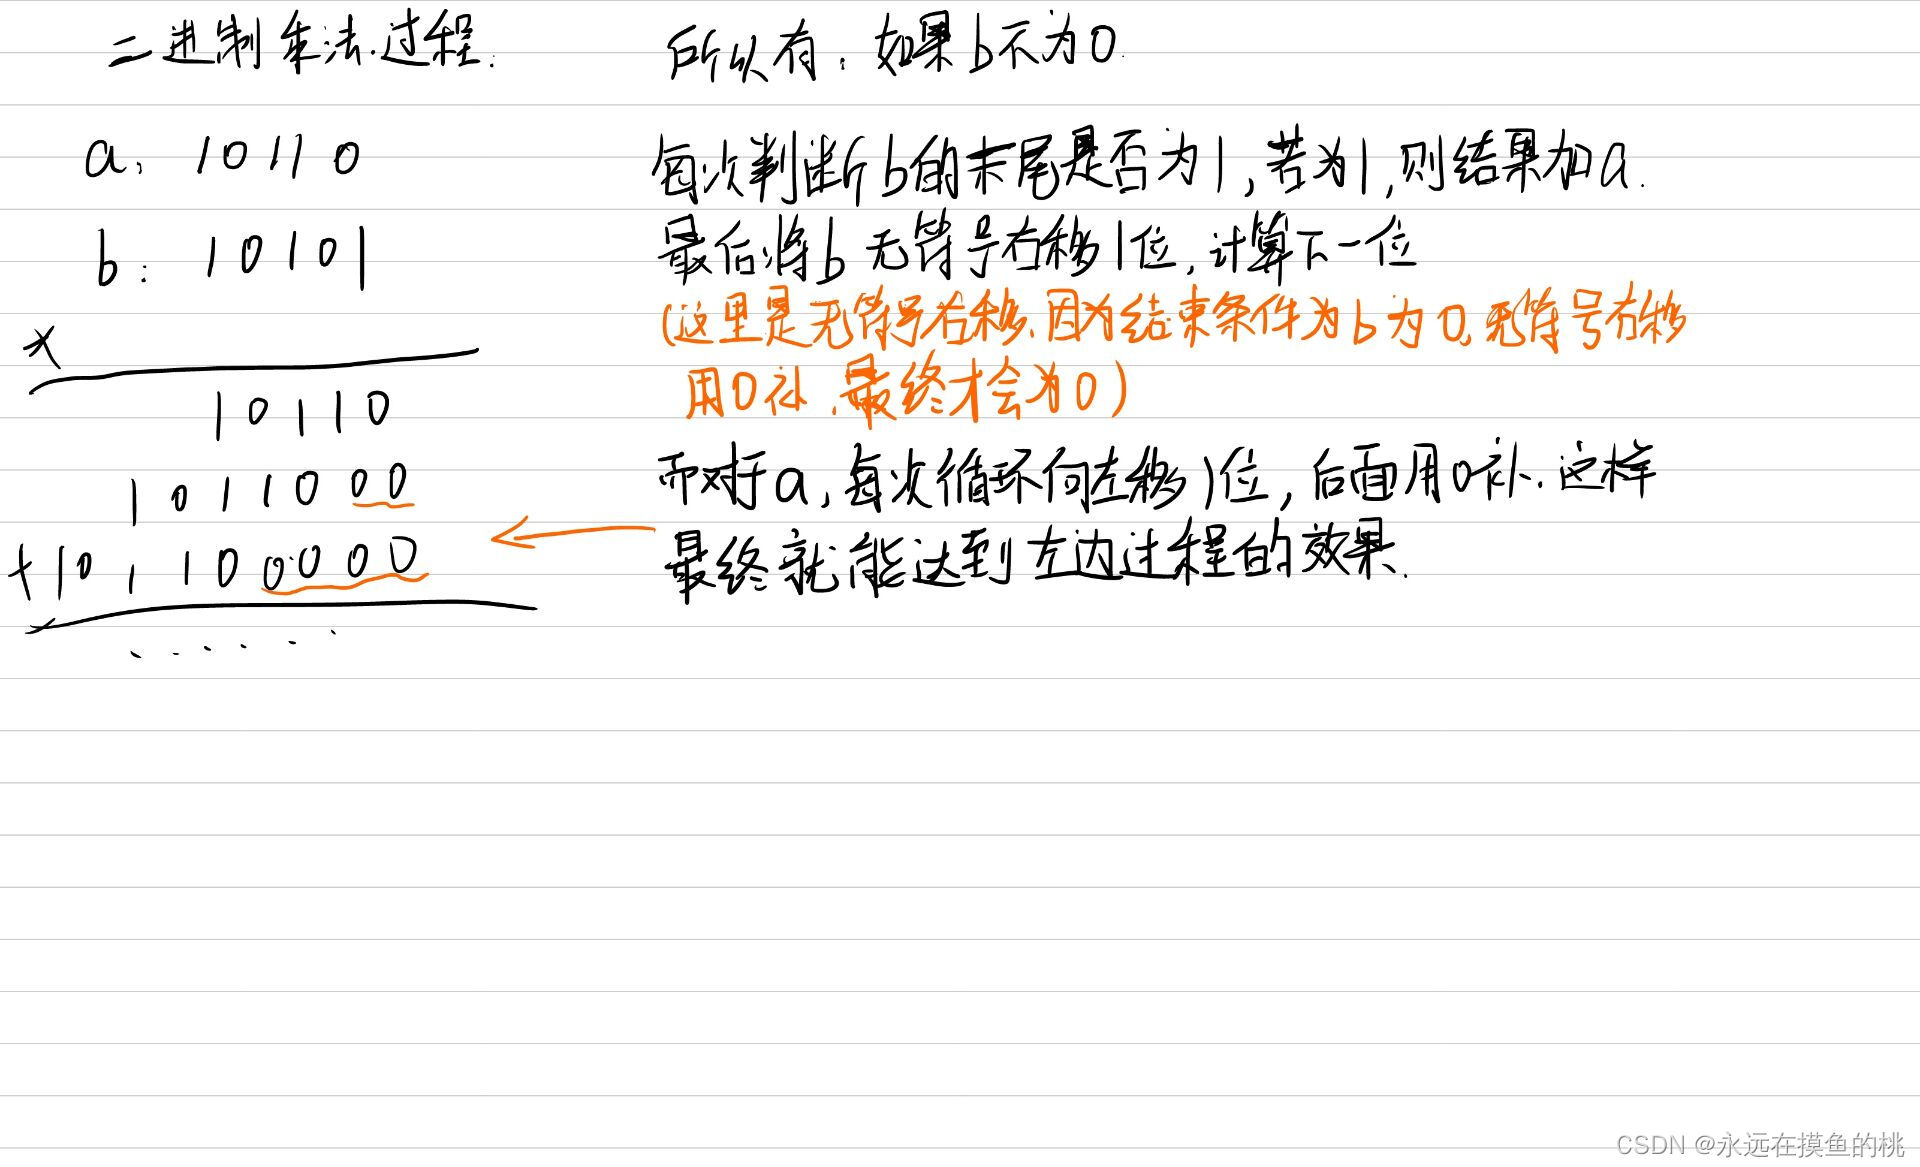 二进制乘法.过程.
a: 10110
b: 10101
×
10110
1011000
+101100000
......
所以有: 如果b不为0.
每次判断b的末尾是否为1,若为1,则结果加a.
最后将b无符号右移1位,计算下一位
(这里是无符号右移.因为结束条件为b为0,无符号右移
用0补.最终才会为0)
而对于a,每次循环向左移1位,后面用0补.这样
最终就能达到左边过程的效果.
CSDN @永远在摸鱼的桃